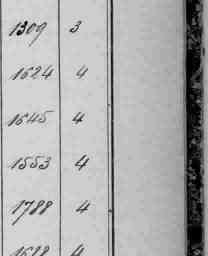 1309 3
1624 4
1645 4
1553 4
1788 4
1688 4